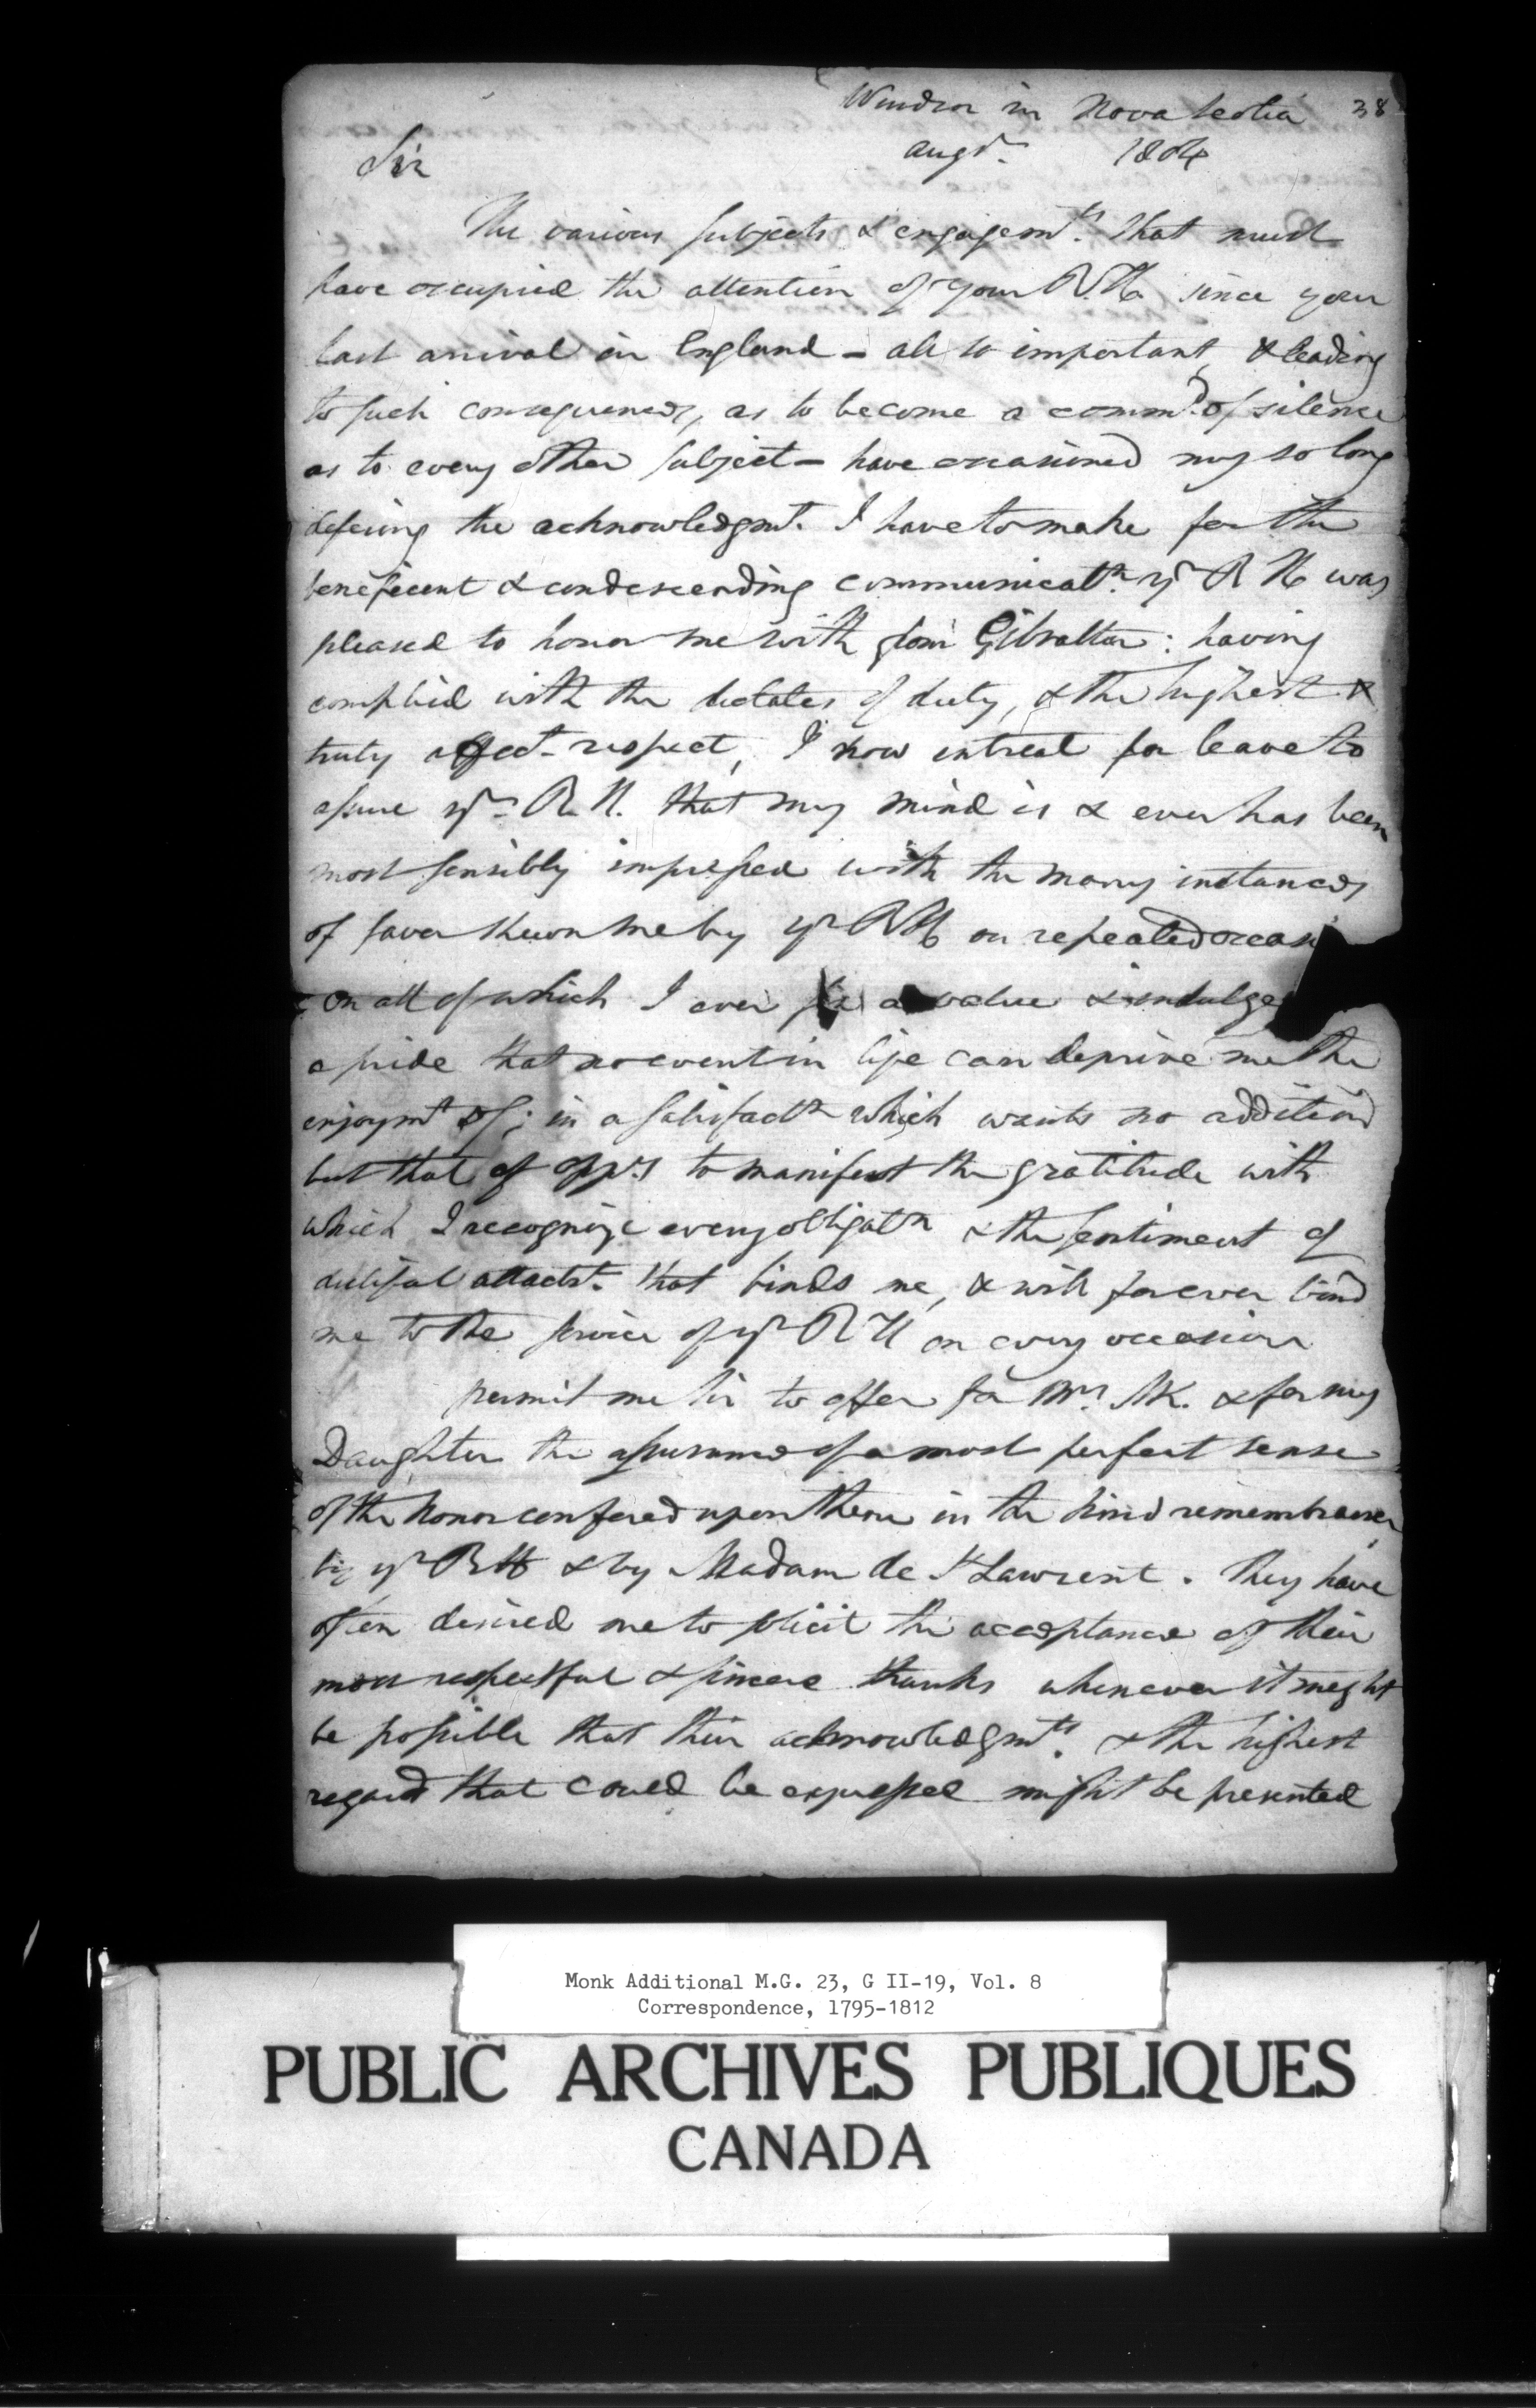 Windsor in Nova Scotia 38
augst. 1804
Sir
The various subjects & engagemts. that must
have occupied the attention of your R.H. since your
last arrival in England - all so important, & leading
to such consequences, as to become a commd. of silence
as to every other subject - have occasioned my so long
defering the acknowledgmt. I have to make for the
beneficent & condescending communicatn. yr R H was
pleased to honor me with from Gibraltar: having
complied with the dictates of duty, & the highest &
truly affect. respect, I now intreat for leave to
assure yr. R.H. that my mind is & ever has been
most sensibly impressed with the many instances
of favor shewn me by yr RH on repeated occasi
on all of which I ever a value & indulge
a pride that no event in life can deprive me the
enjoymt of; in a satisfactn which wants no addition
but that of oppys to manifest the gratitude with
which I recognize every obligatn & the sentiment of
dutiful attacht. that binds me, & will forever bind
me to the service of yr R H on every occasion
permit me Sir to offer for Mrs. MK. & for my
Daughter the assurance of a most perfect sense
of the honor confered upon them in the kind remembrance
by yr RH & by Madam de St Lawrent. They have
often desired me to solicit the acceptance of their
most respectful & sincere thanks whenever it might
be possible that their acknowledgmts. & the highest
regard that could be expressed might be presented
Monk Additional M.G. 23, G II-19, Vol. 8
Correspondence, 1795-1812
PUBLIC ARCHIVES PUBLIQUES
CANADA